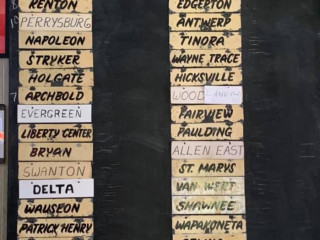 RENTON
PERRYSBURG
NAPOLEON
STRYKER
HOLGATE
ARCHBOLD
EVERGREEN
LIBERTY CENTER
BRYAN
SWANTON
DELTA
WAUSEON
PATRICK HENRY
EDGERTON
ANTWERP
TINORA
WAYNE TRACE
HICKSVILLE
WOOD
FAIRVIEW
PAULDING
ALLEN EAST
ST. MARYS
VAN WERT
SHAWNEE
WAPAKONETA